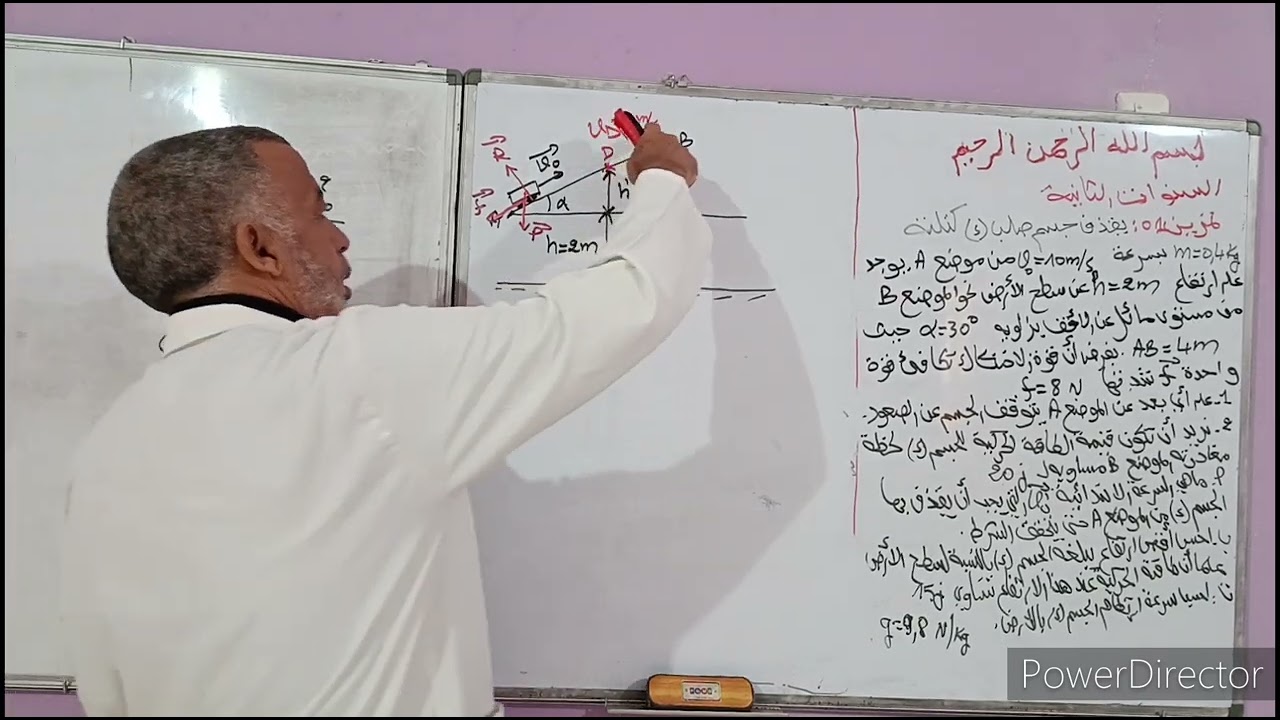 بسم الله الرحمن الرحيم
السنوات الثانية
تمرين 01: يقذف جسم صلب (S) كتلته
m=0,4kg بسرعة v₀=10m/s من موضع A يوجد
على ارتفاع h=2m عن سطح الأرض نحو الموضع B
من مستوى مائل عن الأفق بزاوية α=30° حيث
AB=4m. نفرض أن قوة الاحتكاك تكافئ قوة
واحدة f شدتها f=8 N
1- على أي بعد عن الموضع A يتوقف الجسم عن الصعود.
2- نريد أن تكون قيمة الطاقة الحركية للجسم (S) لحظة
مغادرته الموضع B مساوية لـ
أ- ماهي السرعة الابتدائية التي يجب أن يقذف بها
الجسم (S) من الموضع A حتى يتحقق الشرط.
ب- احسب أقصى ارتفاع يبلغه الجسم (S) بالنسبة لسطح الأرض
علما أن طاقة الحركية عند هذا الارتفاع تساوي 15J
ت- احسب سرعة ارتطام الجسم (S) بالأرض. g=9,8 N/kg
R
v₀
D
B
f
A
α
h'
P
h=2m
PowerDirector